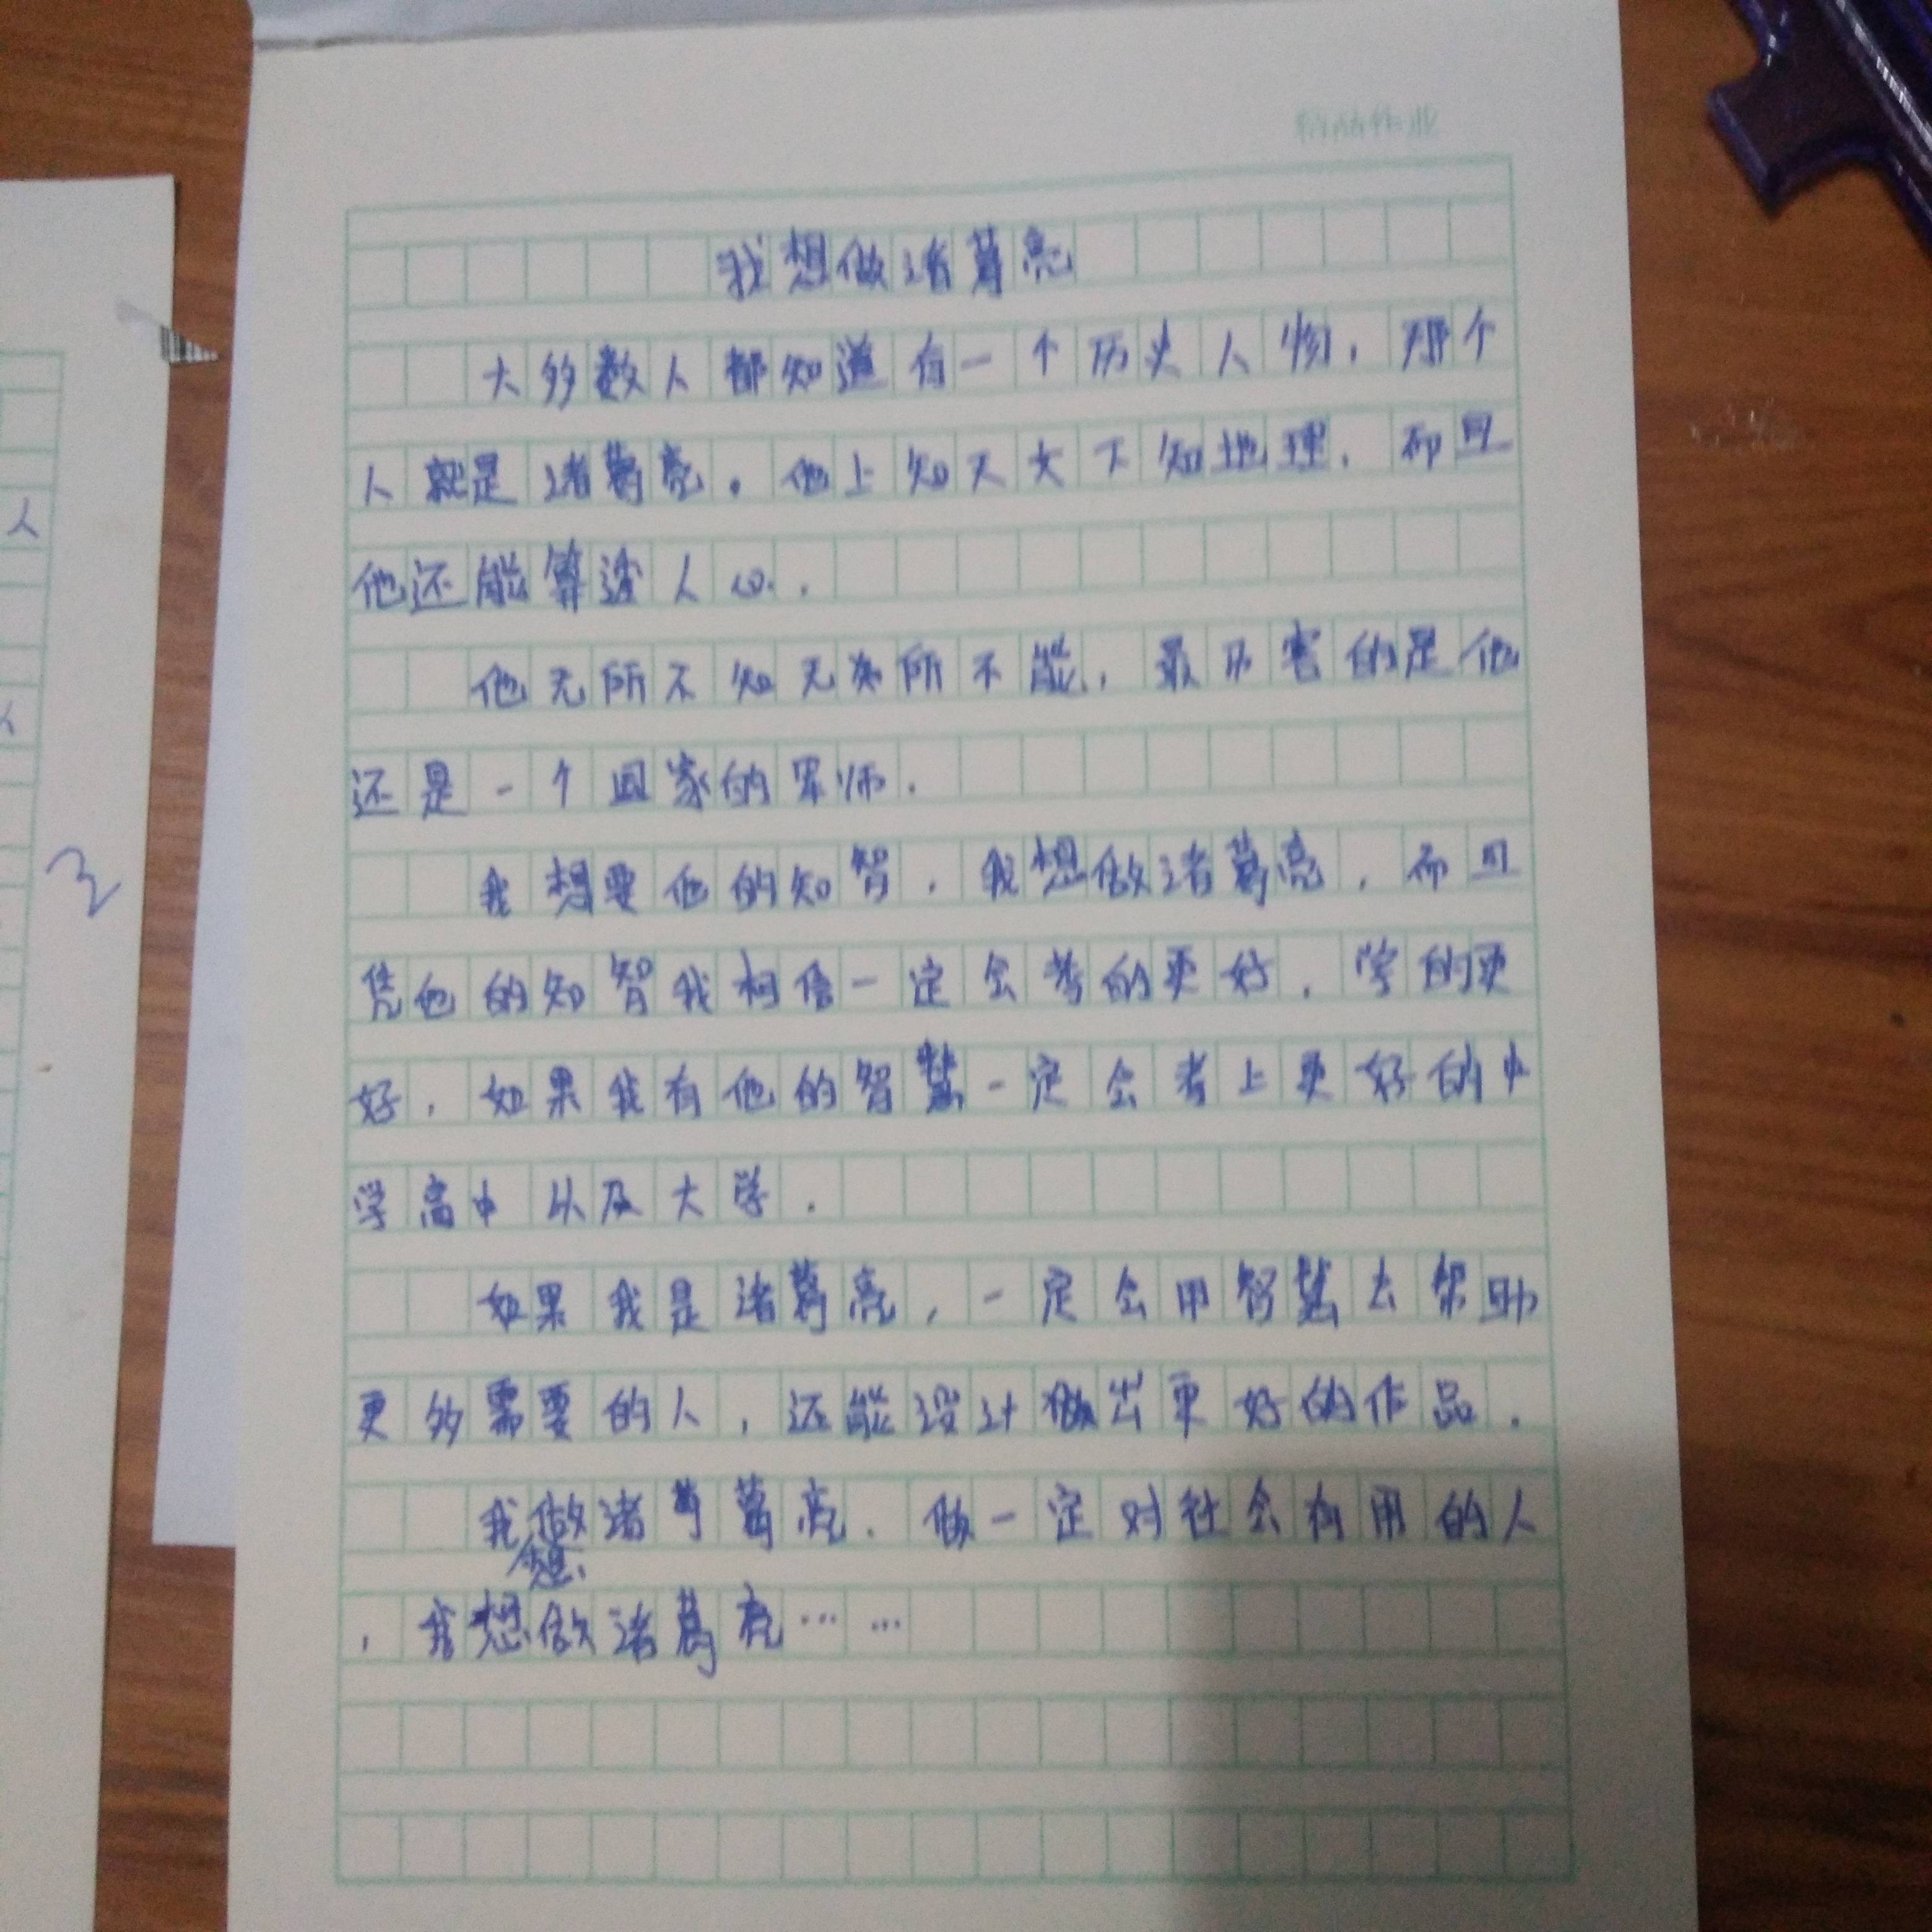 我想做诸葛亮
大多数人都知道有一个历史人物，那个
人就是诸葛亮。他上知天文下知地理，而且
他还能算透人心.
他无所不知无所不能，最历害的是他
还是一个国家的军师.
我想要他的知智，我想做诸葛亮，而且
凭他的知智我相信一定会考的更好，学的更
好，如果我有他的智慧一定会考上更好的中
学高中以及大学.
如果我是诸葛亮，一定会用智慧去帮助
更多需要的人，还能设计做出更好的作品.
我想做诸葛亮.做一定对社会有用的人
，我想做诸葛亮……
人
人